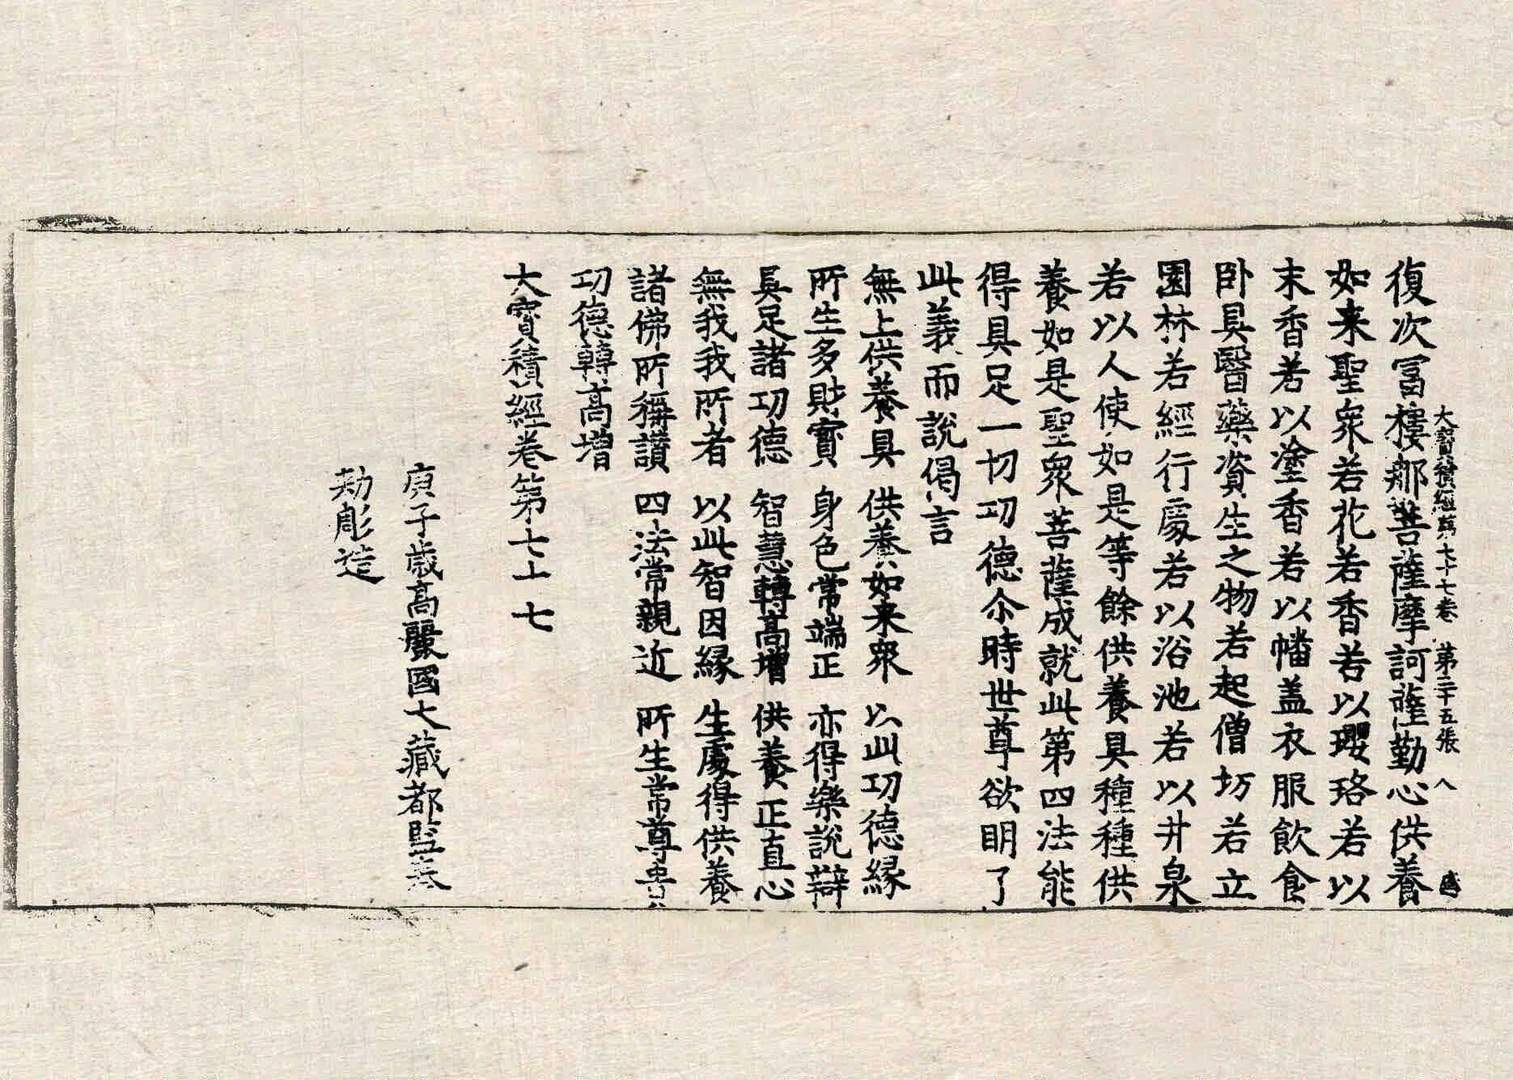 大寶積經第七十七卷 第二十五張 八
復次冨樓那菩薩摩訶薩勤心供養
如来聖衆若花若香若以瓔珞若以
末香若以塗香若以幡盖衣服飲食
卧具醫藥資生之物若起僧坊若立
園林若經行處若以浴池若以井泉
若以人使如是等餘供養具種種供
養如是聖衆菩薩成就此第四法能
得具足一切功德尒時世尊欲明了
此義而說偈言
無上供養具 供養如来衆 以此功德緣
所生多財寶 身色常端正 亦得樂說辯
具足諸功德 智慧轉高增 供養正直心
無我我所者 以此智因緣 生處得供養
諸佛所稱讃 四法常親近 所生常尊貴
功德轉高增
大寶積經卷第七十七
庚子歲高麗國大藏都監奉
勑彫造